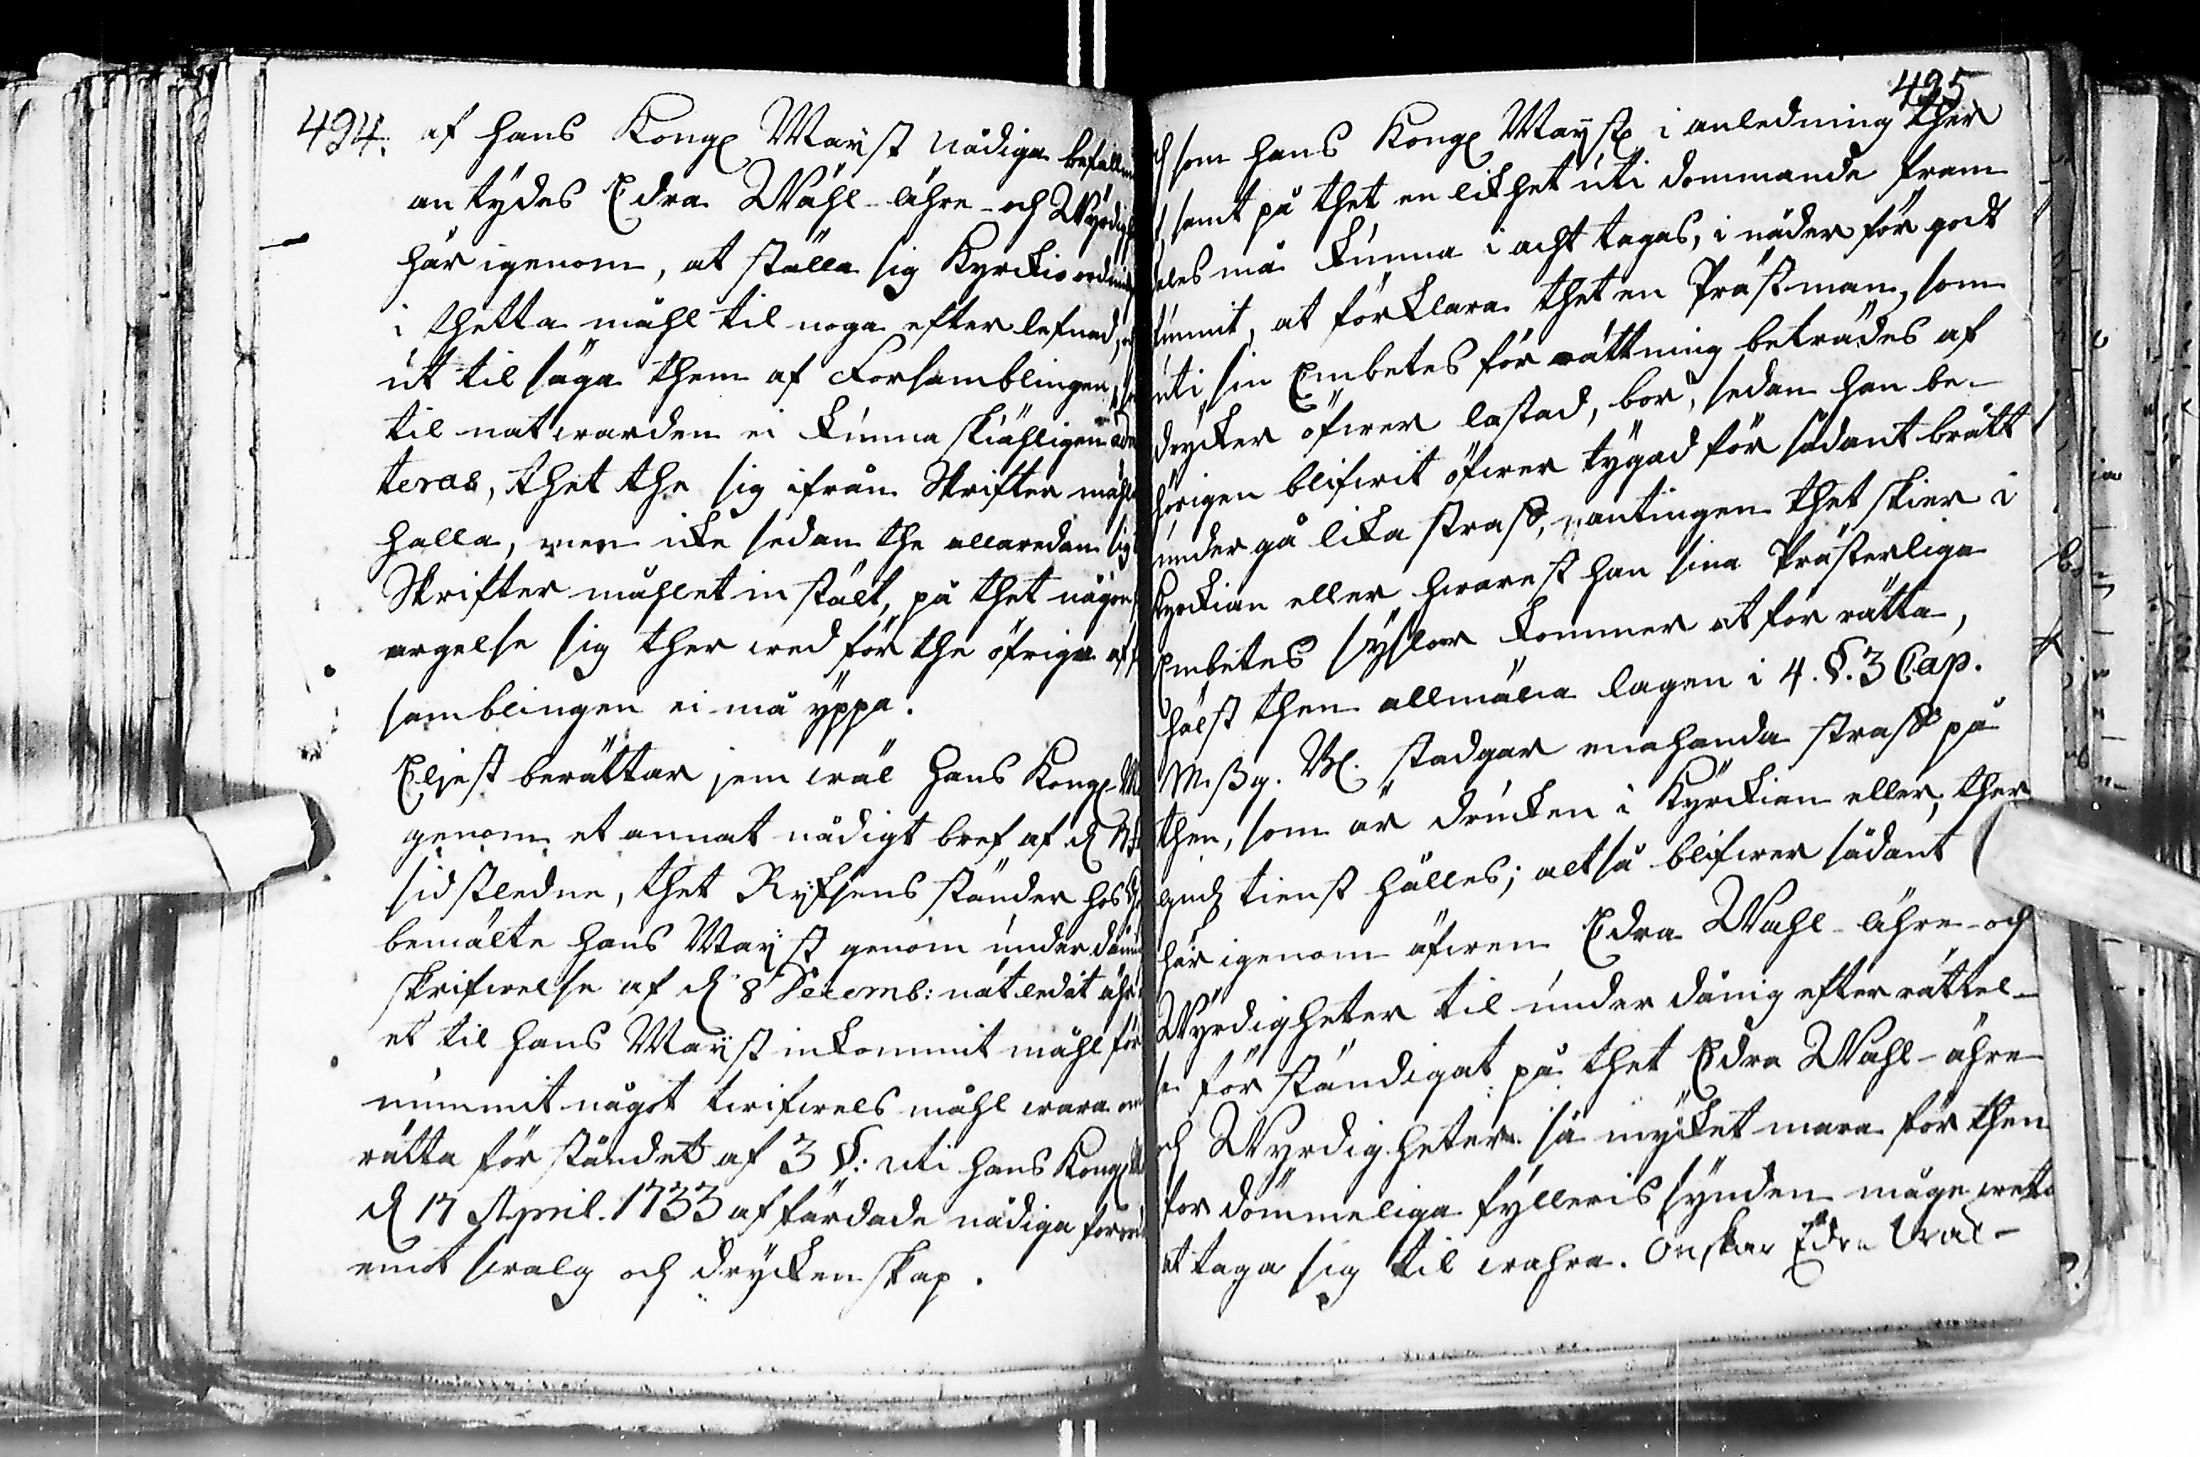 494.
af hans Kongl Mayst nådiga befalln
antydes Edra Wähl-ähre-och Wyrdigh
här igenom, at ställa sig Kyrckioordning
i thetta måhl til noga efterlefnad, och
ut til säga them af Forsamblingen, som
til natwarden ei kunna skiähligen admit
teras, thet the sig ifrån Skriftermåhlet
halla, men icke sedan the allaredan sig i
Skriftermåhlet instält, på thet någon
argelse sig therwed för the öfriga af för
samblingen ei må yppa.
Eljest berättar jemwäl Hans Kongl M
genom et annat nådigt bref af d
sidstledne, thet Ryksens ständer hos
bemälte hans Mayst genom underdånig
skrifwelse af d 8 Decemb: uti ledit åhr
et til hans Mayst inkommit måhl för
nummit något twifwelsmåhl wara om
rätta förståndet af 3 §: uti hans Kongl M
d 17 April. 1733 affärdade nådiga forordn
emot swalg och dryckenskap.
495
och som hans Kongl Mayst i anledning ther
af, samt på thet en likhet uti dommande fram
deles må kunna i acht tagas, i nåder för godt
funnit, at förklara thet en Prästman, som
uti sin Embetes förrättning beträdes af
drycker öfwerlastad, bör, sedan han be-
hörigen blifwit öfwertygad för sådant brått
undergå lika straff, antingen thet skier i
Kyrckian eller hwarest han sina Prästerliga
Embetes sysslor kommer at förrätta,
hälst then allmäna lagen i 4. §. 3 Cap.
Mißg. Bl. stadgar enahanda straff på
then, som är drucken i Kyrckian eller, ther
gudz tienst hålles; altså blifwer sådant
härigenom äfwen Edra Wähl-ähre-och
Wyrdigheter til underdånig efterrättel-
se förständigat på thet Edra Wähl-ähre
och Wyrdigheter så mycket mera för then
fördömmeliga fylleris synden måge weta
at taga sig til wahra. Onskar Edra Wäl-